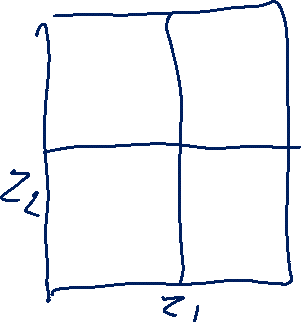 Z2
Z1